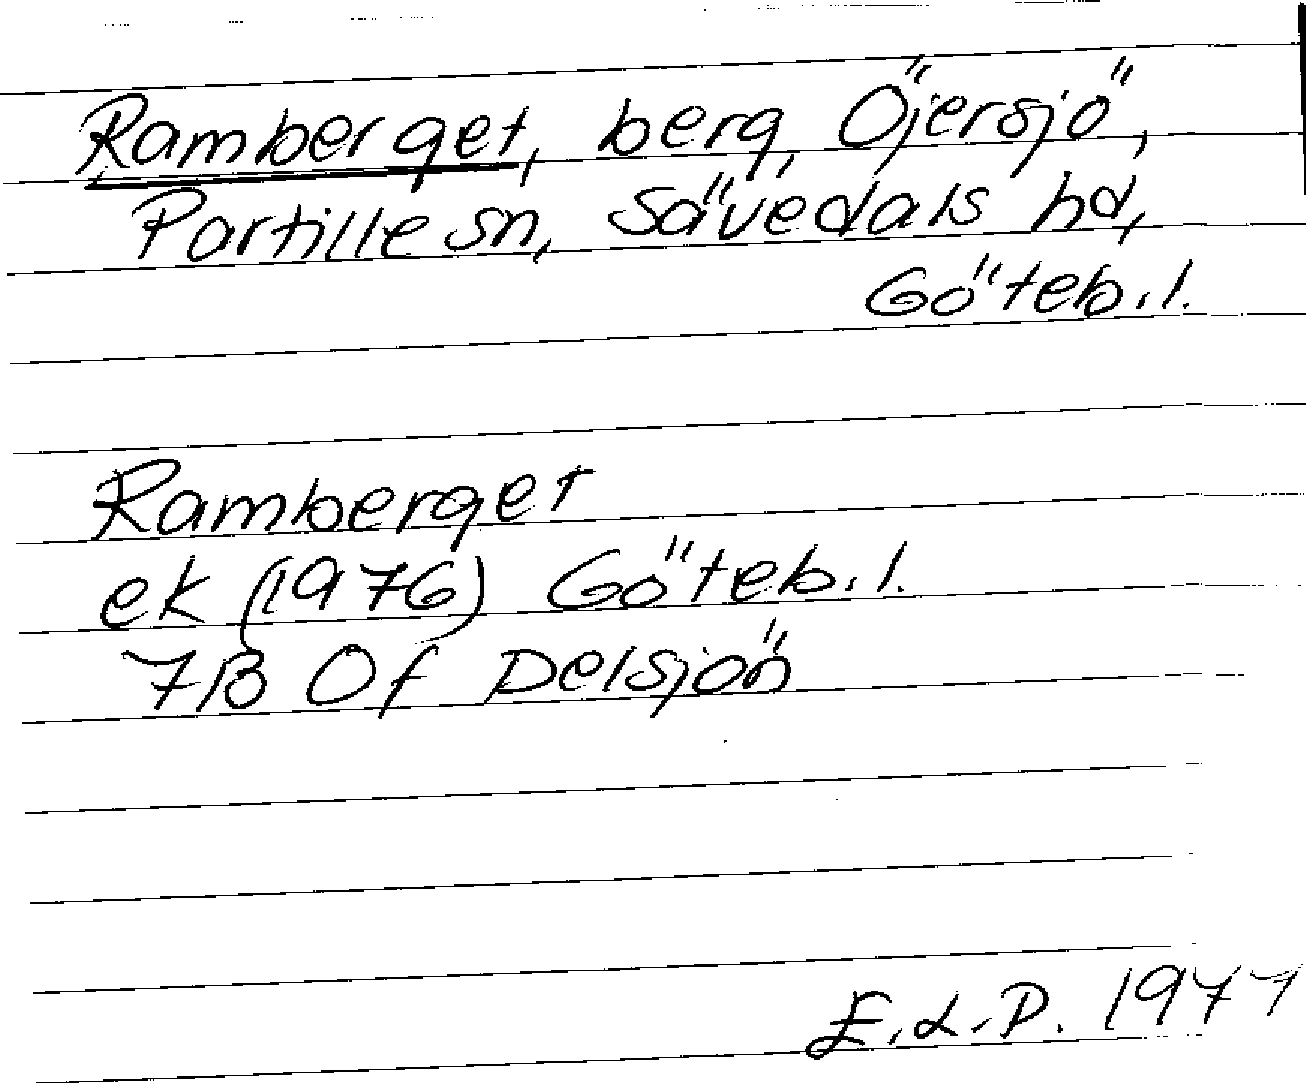 Ramberget, berg, Öjersjö,
Partille sn, Sävedals hd,
Göteb. l.
Ramberget
ek (1976) Göteb. l.
7B 0f Delsjön
E.L.P. 1977